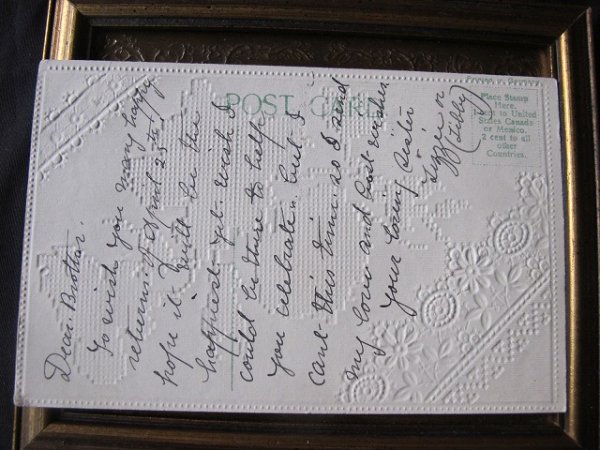 POST CARD
Place Stamp
Here.
1 cent to United
States Canada
or Mexico.
2 cent to all
other
Countries.
Dear Brother.
To wish you many happy
returns of April 25th. I
hope it will be the
happiest yet. wish I
could be there to help
you celebrate. but I
cant this time so I send
my love and best wishes
Your loving sister
Lizzie or
(Libby)